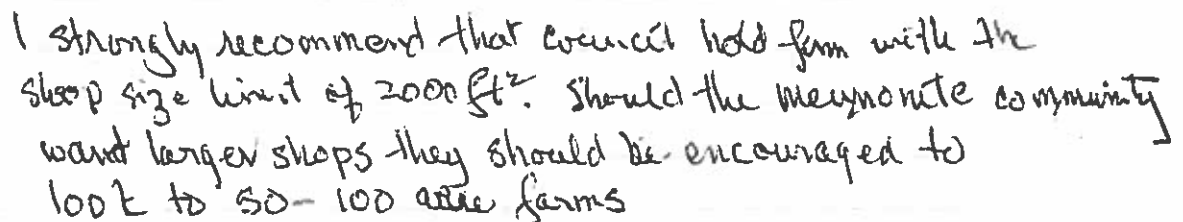 I strongly recommend that council hold firm with the
shop size limit of 2000 ft². Should the meynonite community
want larger shops they should be encouraged to
look to 50-100 acre farms